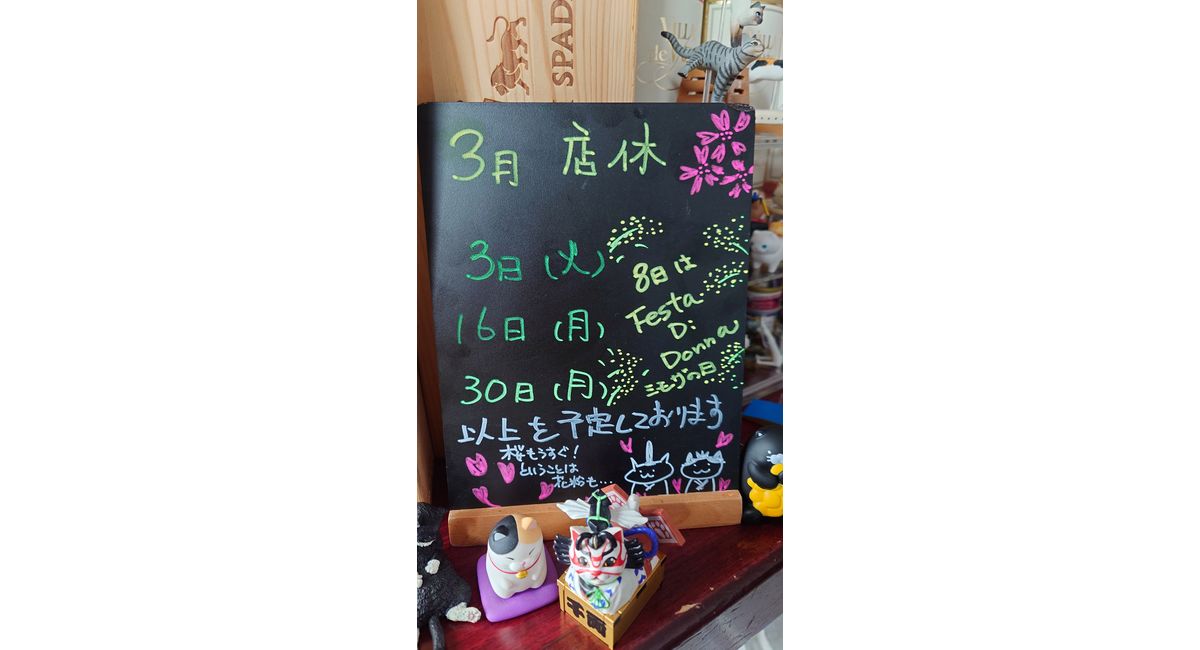 SPAD
3月 店休
3日(火)
16日(月)
30日(月)
8日は
Festa
Di
Donna
ミモザの日
以上を予定しております
桜もうすぐ!
ということは
花粉も…